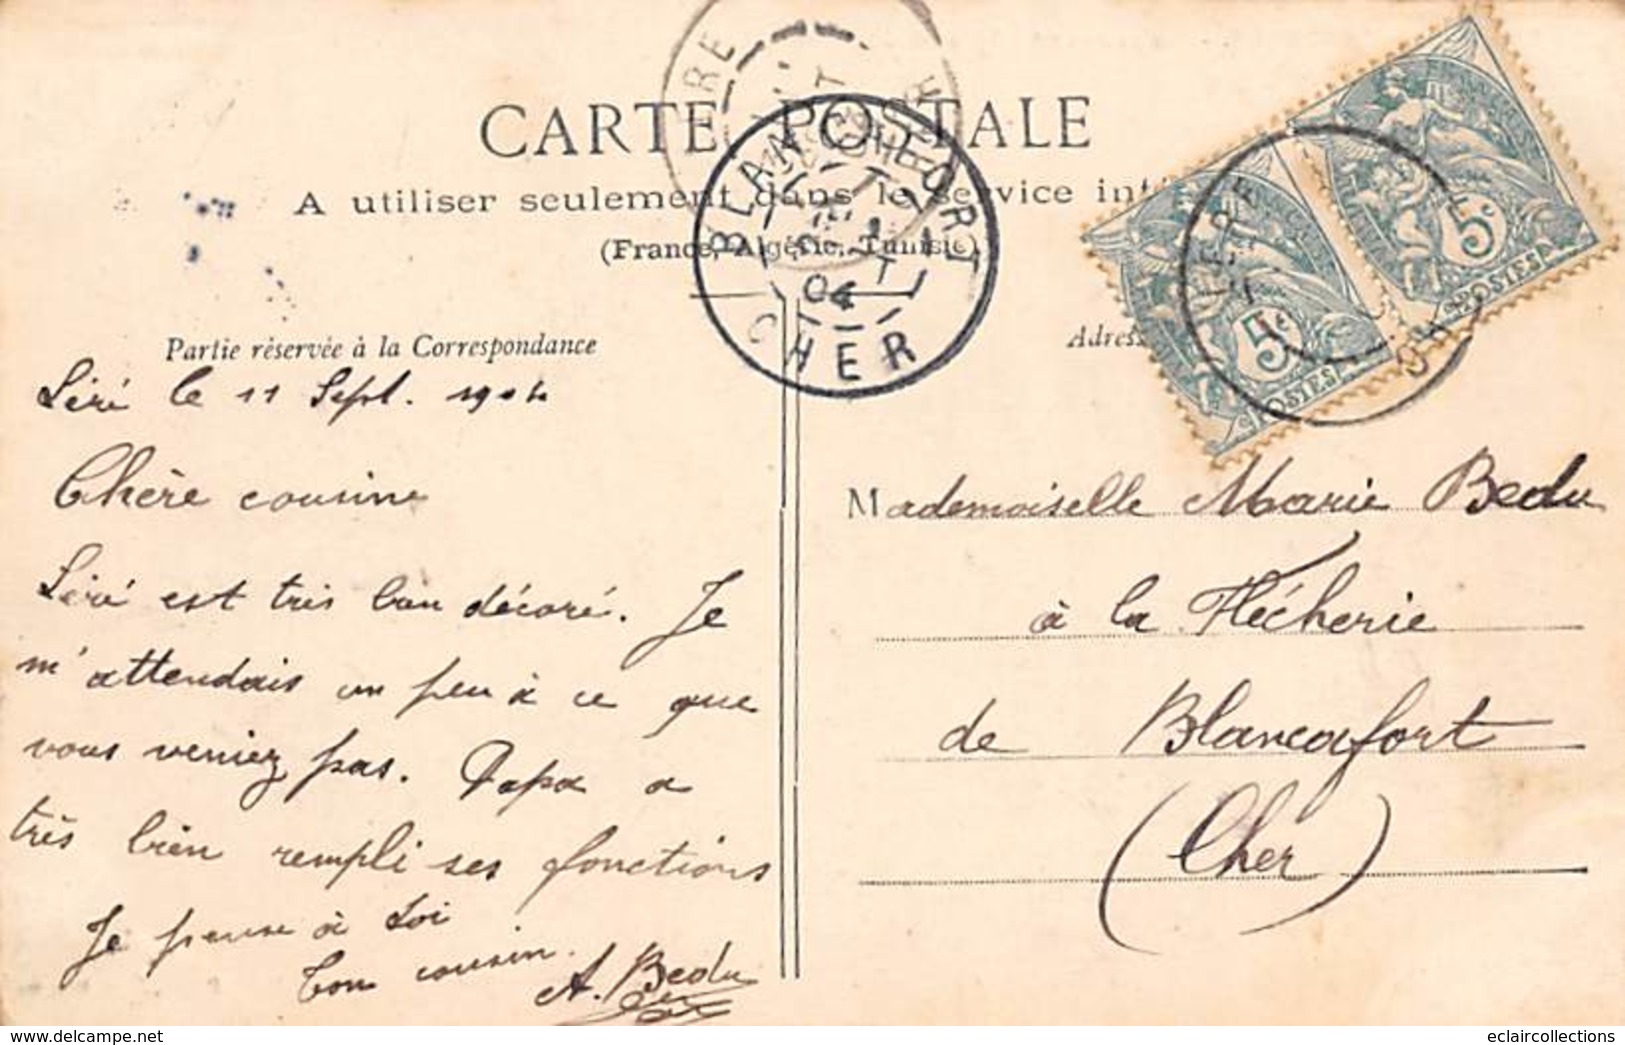 CARTE POSTALE
A utiliser seulement dans le service
(France, Algérie, Tunisie)
BLANCAFORT
04
CHER
LERE
CHER
5c
POSTES
5c
POSTES
Partie réservée à la Correspondance
Léré le 11 Sept. 1904
Chère cousine
Léré est très bien décoré. Je
m'attendais un peu à ce que
vous veniez pas. Papa a
très bien rempli ses fonctions
Je pense à toi
Ton cousin.
A. Bedu
Mademoiselle Marie Bedu
à la Flécherie
de Blancafort
(Cher)
eclaircollections